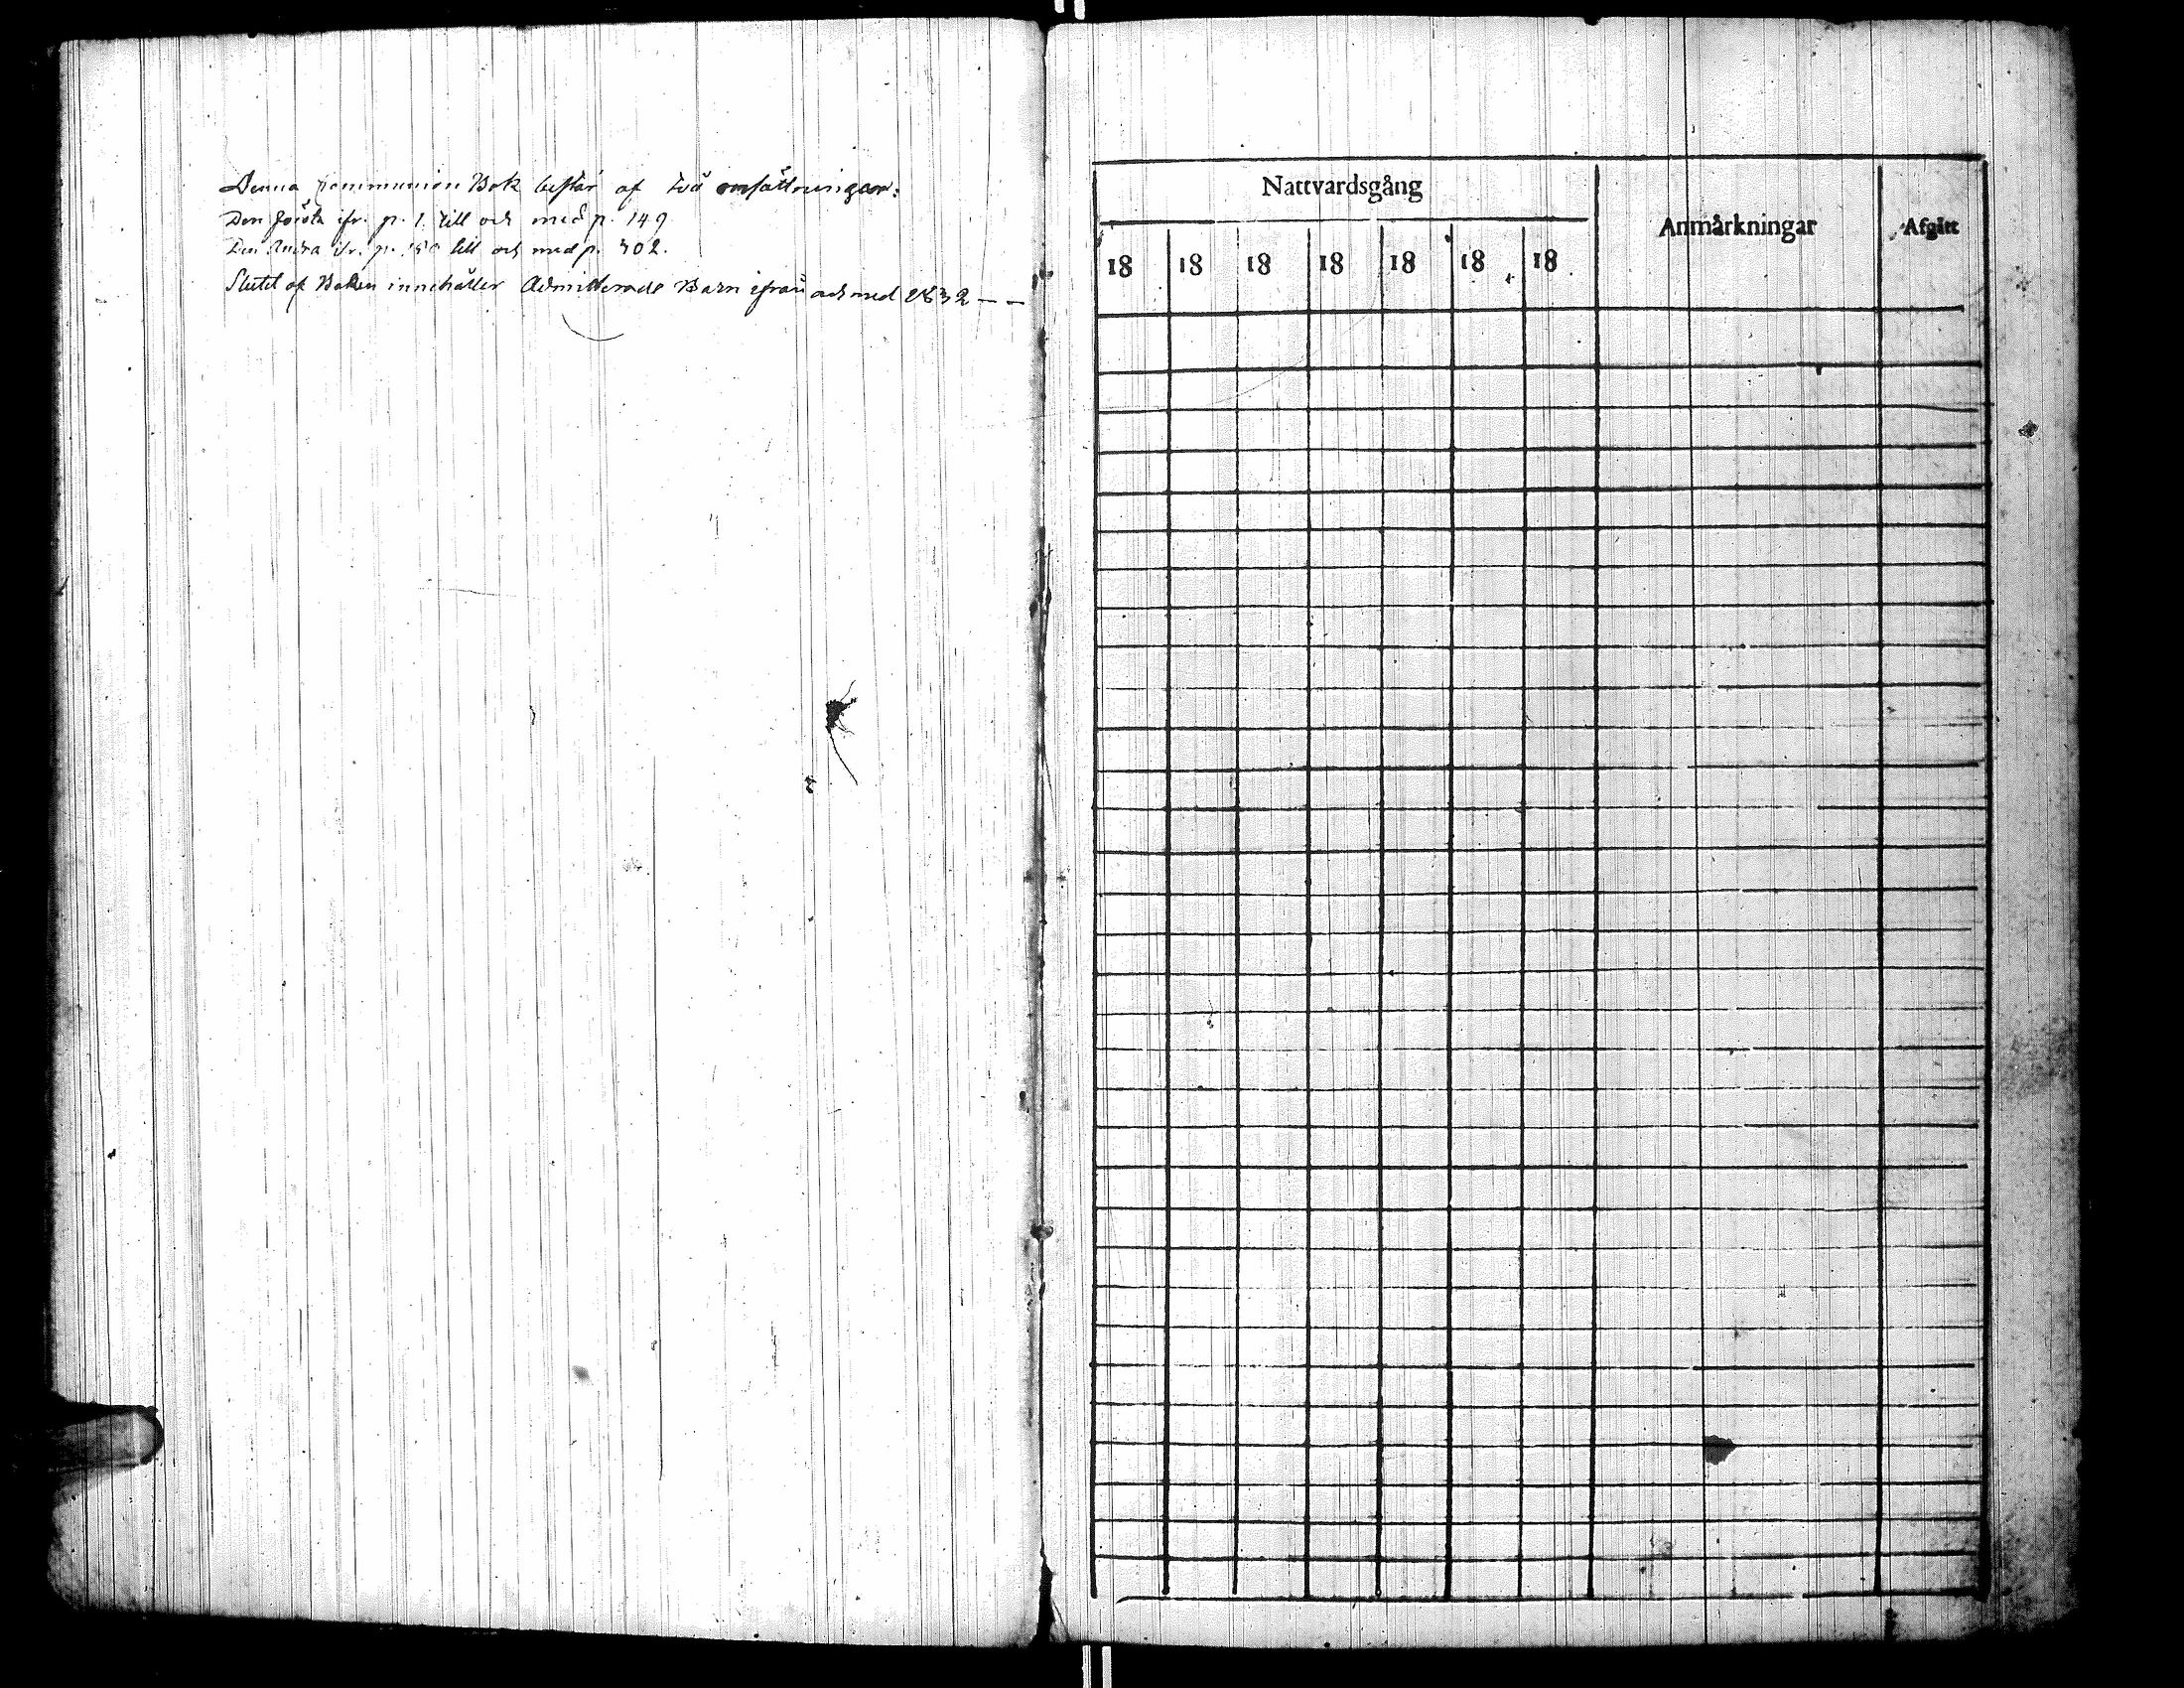 Denna Communion Bok består af två omsättningar:
Den första ifr. p. 1. till och med p. 149
Den Andra ifr. p. 150 till och med p. 302.
Slutet af Boken innehåller Admitterade Barn ifrån och med 1832 — —
Nattvardsgång
Anmårkningar
Afgått
18 18 18 18 18 18 18